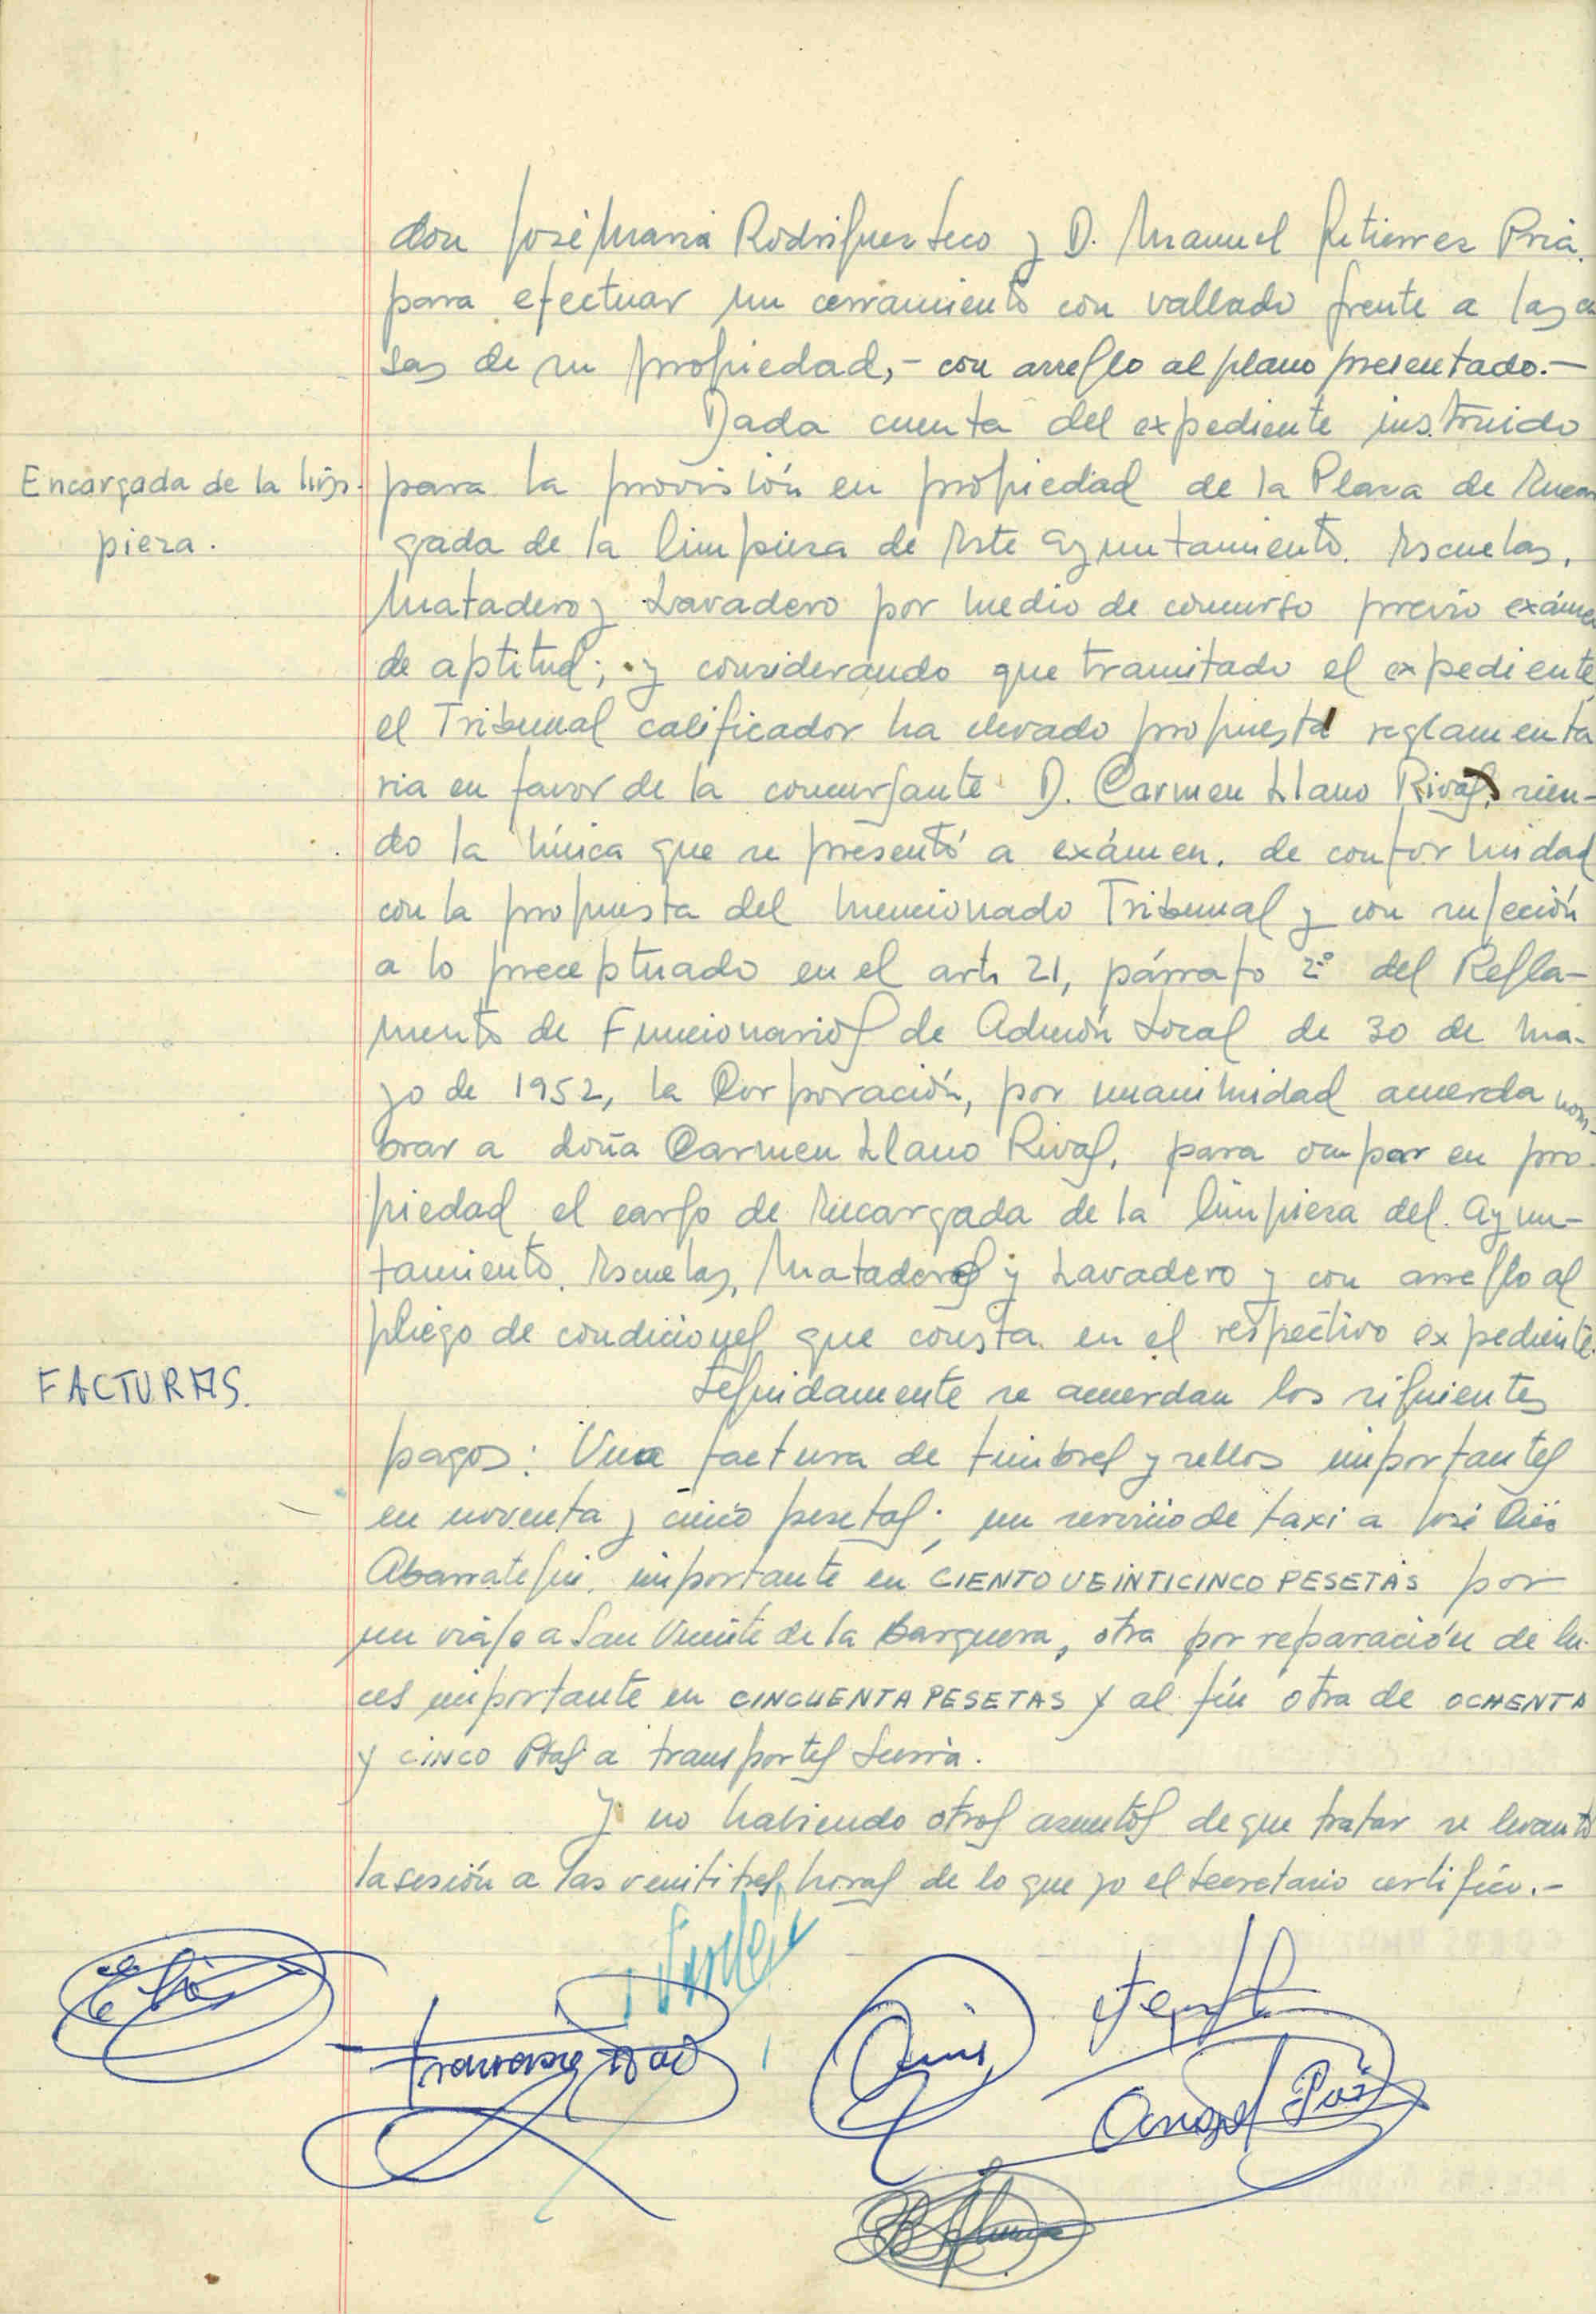 don José Maria Rodriguez Seco y D. Manuel Gutierrez Pria.
para efectuar un cerramiento con vallado frente a las ca
sas de su propiedad,- con arreglo al plano presentado.-
Dada cuenta del expediente instruido
Encargada de la lim-
piera.
para la provisión en propiedad de la Plaza de Encar
gada de la limpieza de Este Ayuntamiento. Escuelas,
Matadero y Lavadero por medio de concurso previo exámen
de aptitud; y considerando que tramitado el expediente,
el Tribunal calificador ha elevado propuesta reglamenta
ria en favor de la concursante D. Carmen Llano Rivas, sien-
do la única que se presentó a exámen. de conformidad
con la propuesta del mencionado Tribunal y con sujeción
a lo preceptuado en el art. 21, párrafo 2º del Regla-
mento de Funcionarios de Admón Local de 30 de Ma-
yo de 1952, la Corporación, por unanimidad acuerda nom-
brar a doña Carmen Llano Rivas, para ocupar en pro
piedad el cargo de Encargada de la limpieza del Ayun-
tamiento. Escuelas, Matadero y Lavadero y con arreglo al
pliego de condiciones que consta en el respectivo expediente.
FACTURAS.
Seguidamente se acuerdan los siguientes
pagos: Una factura de timbres y sellos importantes
en noventa y cinco pesetas; un servicio de taxi a José
importante en CIENTO VEINTICINCO PESETAS por
un viaje a San Vicente de la Barquera, otra por reparación de lu-
ces importante en CINCUENTA PESETAS y al fin otra de OCHENTA
y CINCO Ptas a transportes
Y no habiendo otros asuntos de que tratar se levantó
la sesión a las veintitres horas de lo que yo el Secretario certifico.-
Angel